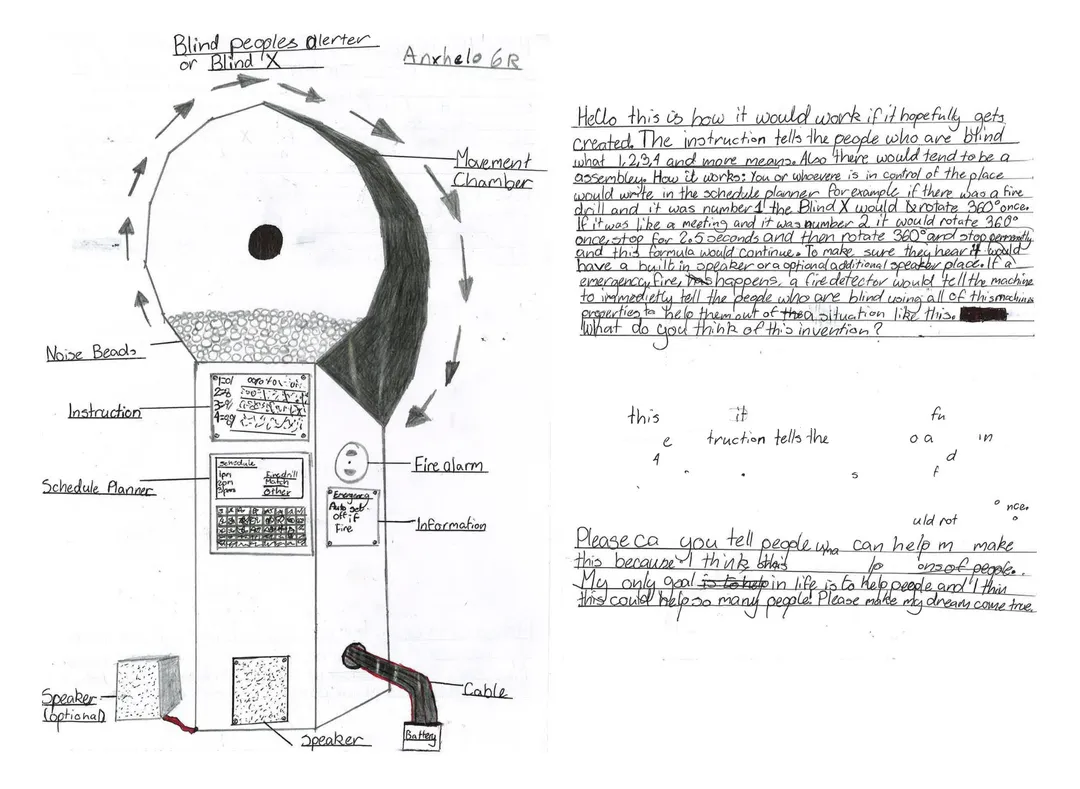 Blind peoples alerter
or Blind X
Anxhelo 6R
Movement
Chamber
Noise Beads
Instruction
Schedule Planner
schedule
1pm Firedrill
2pm Match
3pm Other
Fire alarm
Emergency
Auto set
off if
Fire
Information
Speaker
(optional)
Speaker
Cable
Battery
Hello this is how it would work if it hopefully gets
created. The instruction tells the people who are blind
what 1,2,3,4 and more means. Also there would tend to be a
assembley. How it works: You or whoevere is in control of the place
would write in the schedule planner for example if there was a fire
drill and it was number 1 the Blind X would rotate 360° once.
If it was like a meeting and it was number 2 it would rotate 360°
once, stop for 2.5 seconds and then rotate 360° and stop
and this formula would continue. To make sure they hear it would
have a built in speaker or a optional additional speaker place. If a
emergency fire, happens, a fire detector would tell the machine
to immedietly tell the people who are blind using all of this machines
properties to help them out of a situation like this.
What do you think of this invention?
this it fu
e truction tells the o a in
4 d
s f
nce.
uld rot
Please ca you tell people who can help m make
this because I think this lp ons of people.
My only goal is to help in life is to help people and I thin
this could help so many people. Please make my dream come true.